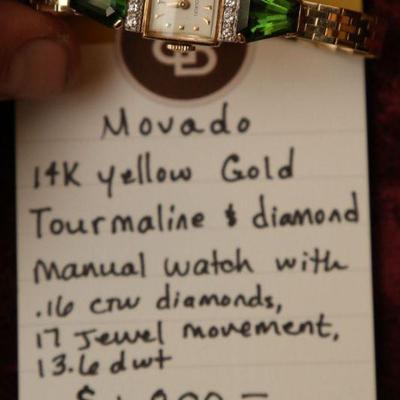 Movado
14K yellow Gold
Tourmaline & diamond
Manual watch with
.16 CTW diamonds,
17 Jewel movement,
13.6 dwt